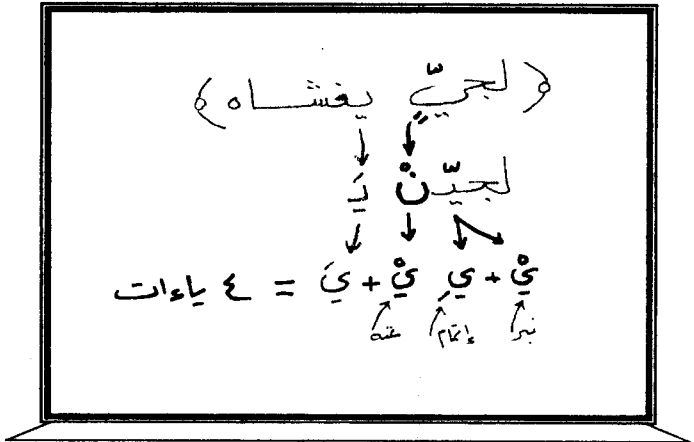 ﴿لجيٍّ يغشاه﴾
لجيّنْ يَ
يْ + يِ يْ + يَ = ٤ ياءات
نبر إتمام غنه